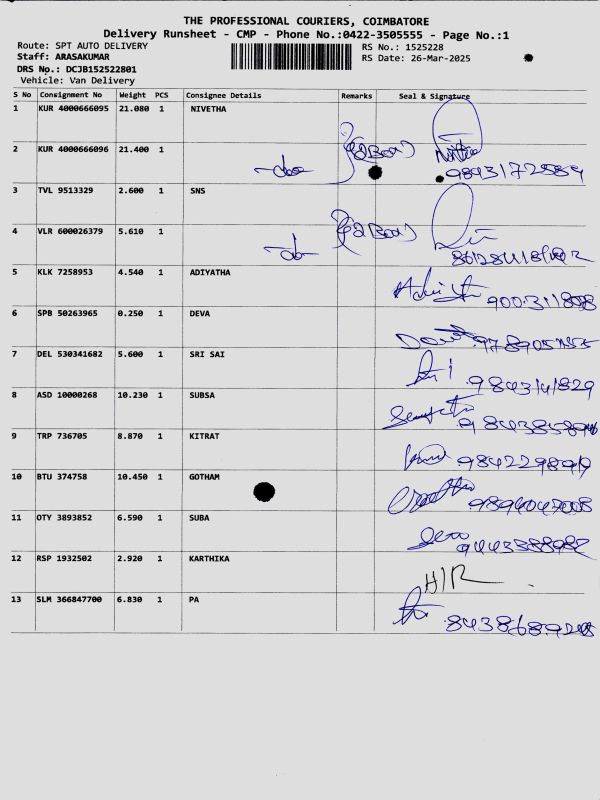 THE PROFESSIONAL COURIERS, COIMBATORE
Delivery Runsheet - CMP - Phone No.:0422-3505555 - Page No.:1
Route: SPT AUTO DELIVERY
RS No.: 1525228
Staff: ARASAKUMAR
RS Date: 26-Mar-2025
DRS No.: DCJB152522801
Vehicle: Van Delivery
S No Consignment No Weight PCS Consignee Details Remarks Seal & Signature
1 KUR 4000666095 21.080 1 NIVETHA
2 KUR 4000666096 21.400 1 -do- (2 Box) 9843172584
3 TVL 9513329 2.600 1 SNS
4 VLR 600026379 5.610 1 -do- (2 Box)
5 KLK 7258953 4.540 1 ADIYATHA
6 SPB 50263965 0.250 1 DEVA
7 DEL 530341682 5.600 1 SRI SAI 9843141829
8 ASD 10000268 10.230 1 SUBSA
9 TRP 736705 8.870 1 KITRAT
10 BTU 374758 10.450 1 GOTHAM
11 OTY 3893852 6.590 1 SUBA
12 RSP 1932502 2.920 1 KARTHIKA H/R
13 SLM 366847700 6.830 1 PA